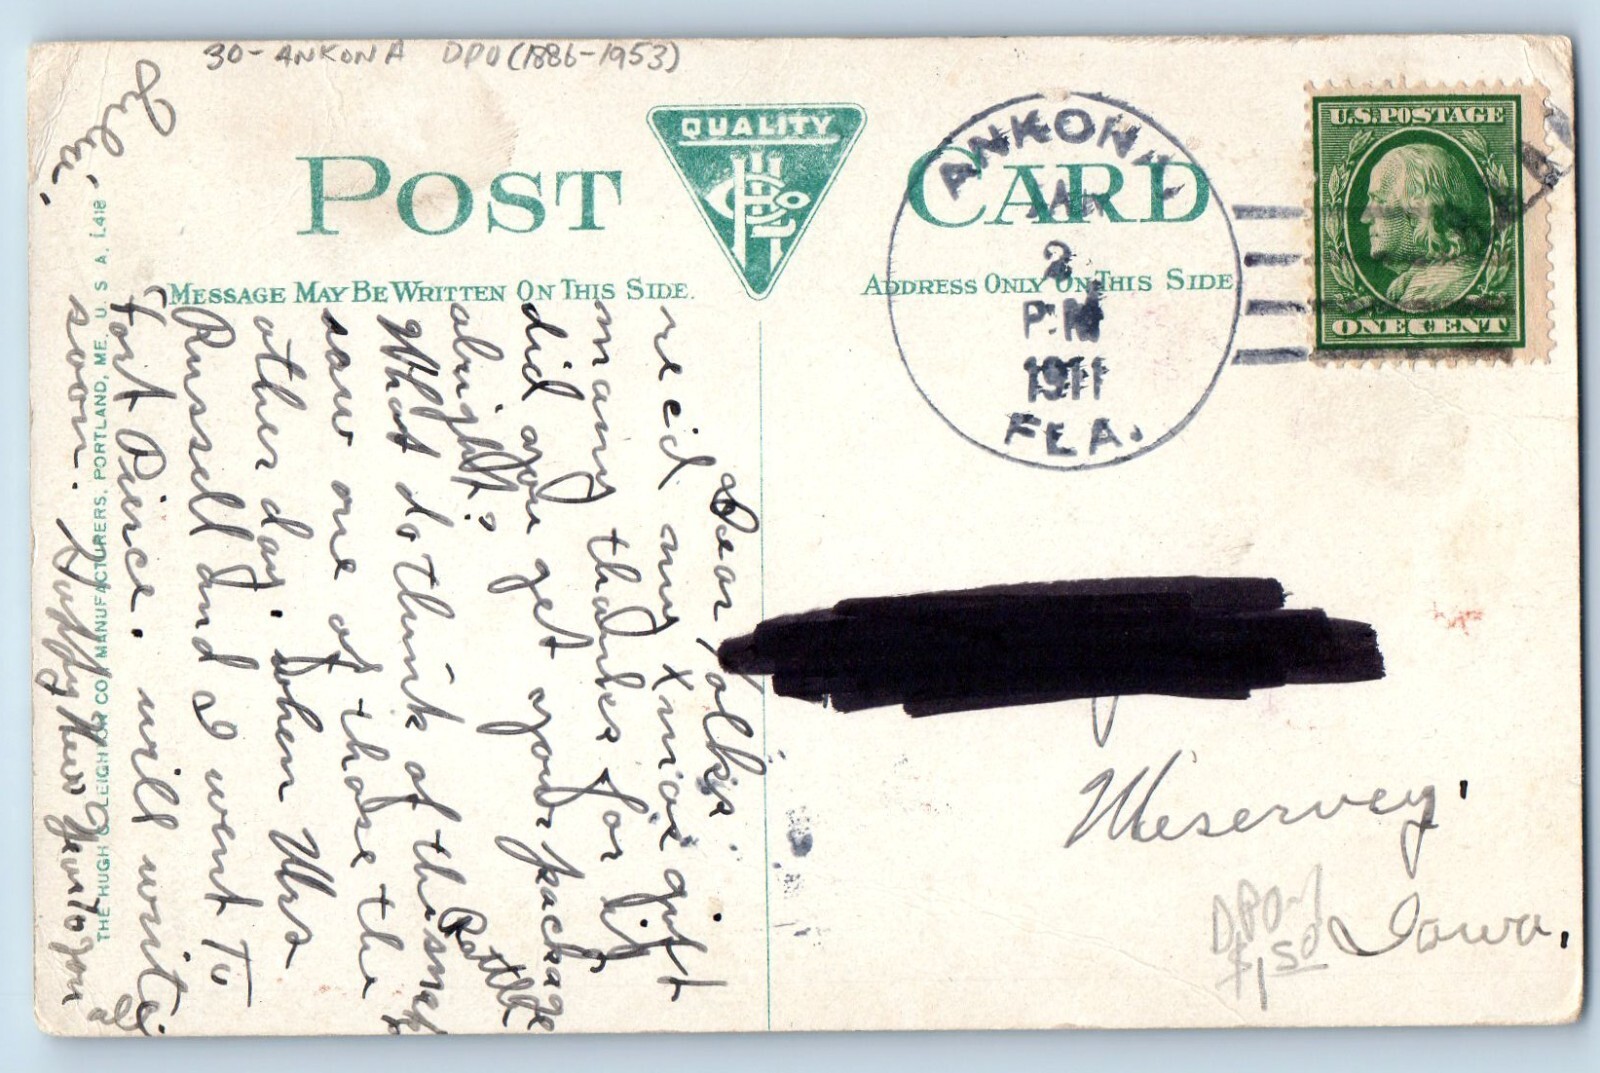 30- ANKONA DPO (1886-1953)
POST CARD
QUALITY
MESSAGE MAY BE WRITTEN ON THIS SIDE.
ADDRESS ONLY ON THIS SIDE
ANKONA
JAN
2
P.M
1911
FLA.
U.S. POSTAGE
ONE CENT
Dear folks.
recid my Xmas gift.
many thanks for it,
did you get your package
alright?
What do think of this snap
Rattle
saw one of those the
other day. When Mrs
Russell and I went to
Fort Pierce. will write
soon. Happy New Year to you
all
THE HUGH C. LEIGHTON CO., MANUFACTURERS, PORTLAND, ME. U. S. A. L418
Meservey.
Iowa.
DPO
$1.50